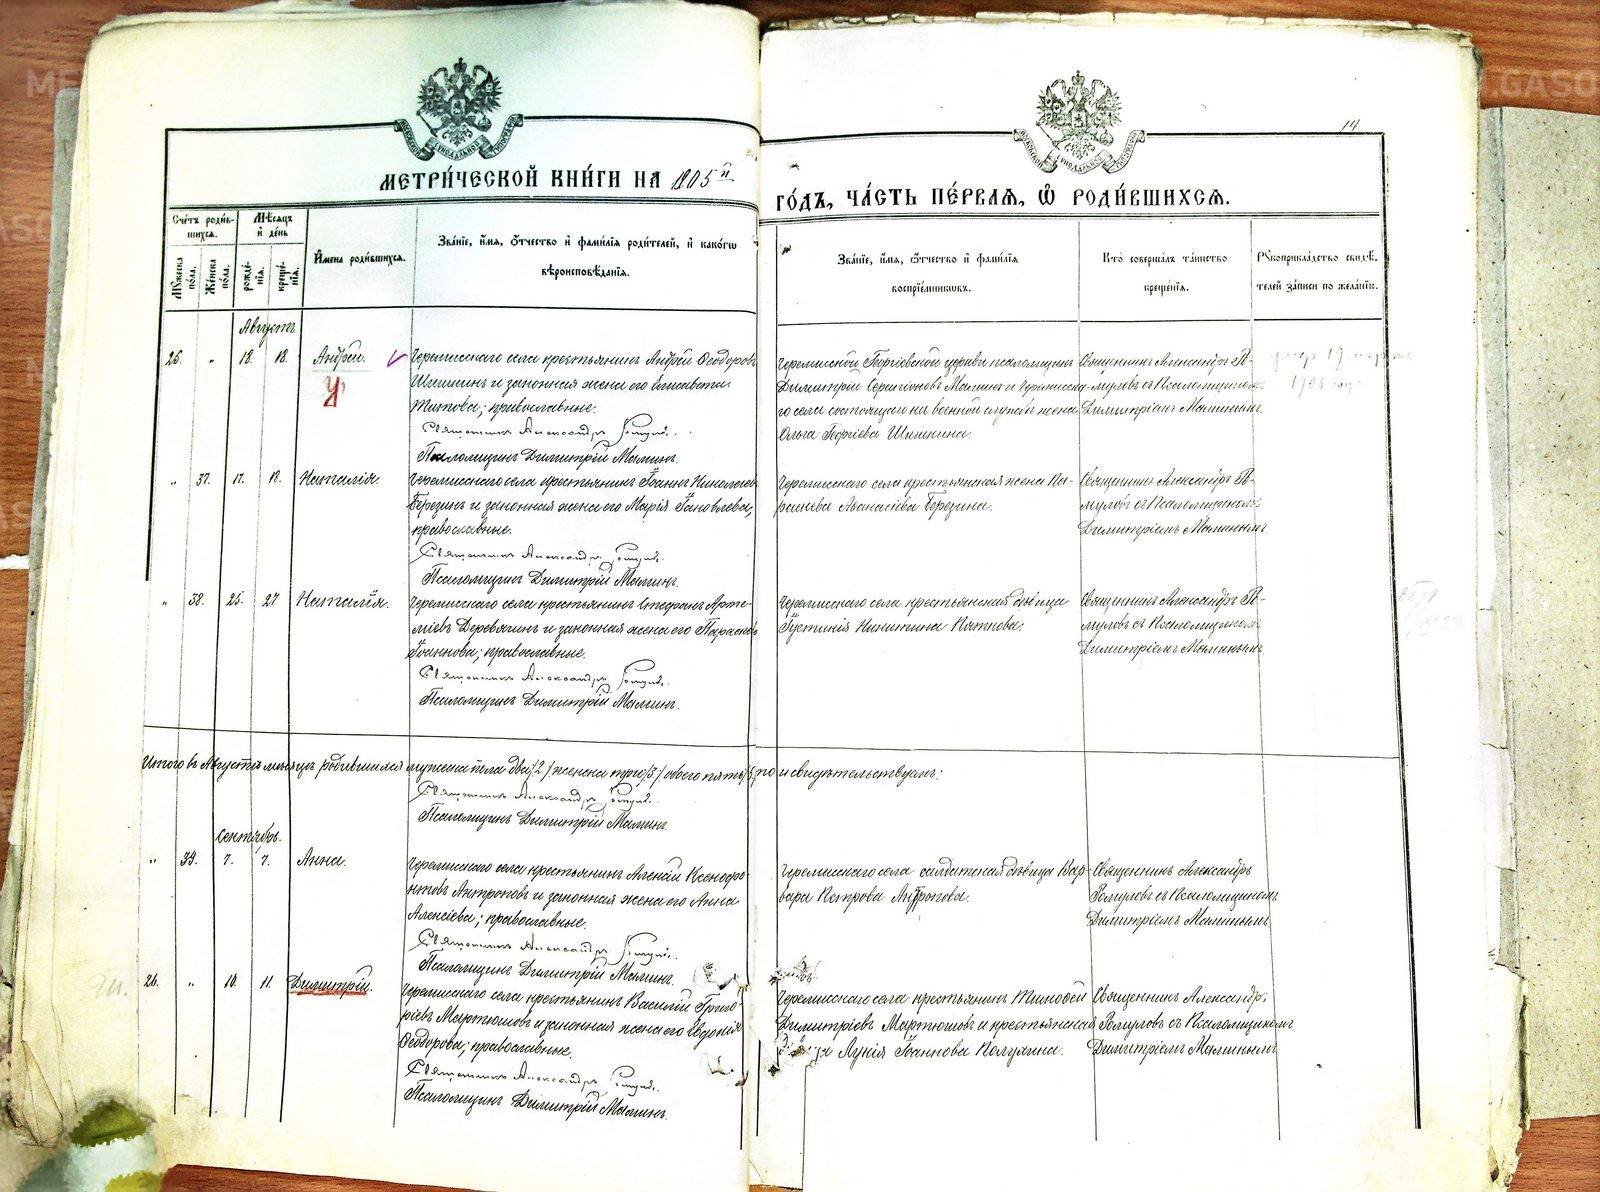 14
МЕТРИ́ЧЕСКОЙ КНИ́ГИ НА 1905 й
ГО́ДЪ, ЧА́СТЬ ПЕ́РВАЯ, Ѡ РОДИ́ВШИХСЯ.
Сче́тъ роди́в-
шихся.
Мѣ́сяцъ
и́ де́нь
Му́жеска
по́ла.
Же́нска
по́ла.
рожде́-
нїя.
креще́-
нїя.
И́мена роди́вшихся.
Зва́нїе, и́мя, ѻ́тчество и́ фами́лїя роди́телей, и́ како́гѡ
вѣроисповѣ́данїя.
Зва́нїе, и́мя, ѻ́тчество и́ фами́лїя
воспрїе́мниковъ.
Кто̀ соверша́лъ та́инство
креще́нїя.
Рꙋкоприкла́дство свидѣ́-
телей за́писи по жела́нїю.
Августъ
25. „ 18. 18. Андрей.
Черемисскаго села крестьянинъ Андрей Ѳеодоровъ
Шишкинъ и законная жена его Елисавета
Титова; православные.
Священникъ Александръ
Псаломщикъ Димитрій Маминъ.
Черемисской Георгіевской церкви псаломщикъ
Димитрій Серапіоновъ Маминъ и Черемисска-
го села состоящаго на военной службѣ жена
Ольга Георгіева Шишкина.
Священникъ Александръ Ро-
муловъ съ Псаломщикомъ
Димитріемъ Маминымъ.
„ 37. 17. 18. Наталія.
Черемисскаго села крестьянинъ Іоаннъ Николаевъ
Березинъ и законная жена его Марія Іаковлева;
православные.
Священникъ Александръ
Псаломщикъ Димитрій Маминъ.
Черемисскаго села крестьянская жена Па-
раскева Аѳанасіева Березина.
Священникъ Александръ Ро-
муловъ съ Псаломщикомъ
Димитріемъ Маминымъ.
„ 38. 25. 27 Наталія.
Черемисскаго села крестьянинъ Стефанъ Арте-
міевъ Деревягинъ и законная жена его Параскева
Іоаннова; православные.
Священникъ Александръ
Псаломщикъ Димитрій Маминъ.
Черемисскаго села крестьянская дѣвица
Іустинія Никитина Пяткова.
Священникъ Александръ Ро-
муловъ съ Псаломщикомъ
Димитріемъ Маминымъ
Итого въ Августѣ мѣсяцѣ родившихся мужеска пола два /2/ женска три /3/ обоего пять /5/, что и свидѣтельствуемъ:
Священникъ Александръ
Псаломщикъ Димитрій Маминъ.
Сентябрь.
„ 39. 7. 7. Анна.
Черемисскаго села крестьянинъ Алексій Ксенофо-
нтовъ Антроповъ и законная жена его Анна
Алексіева; православные.
Священникъ Александръ
Псаломщикъ Димитрій Маминъ.
Черемисскаго села солдатская дѣвица Вар-
вара Петрова Антропова.
Священникъ Александръ
Ромуловъ съ Псаломщикомъ
Димитріемъ Маминымъ
26. „ 10. 11. Димитрій.
Черемисскаго села крестьянинъ Василій Григо-
ріевъ Мартюшовъ и законная жена его Евдокія
Ѳеодорова; православные.
Священникъ Александръ
Псаломщикъ Димитрій Маминъ.
Черемисскаго села крестьянинъ Тимоѳей
Димитріевъ Мартюшовъ и крестьянская
Лукія Іоаннова Полухина.
Священникъ Александръ
Ромуловъ съ Псаломщикомъ
Димитріемъ Маминымъ